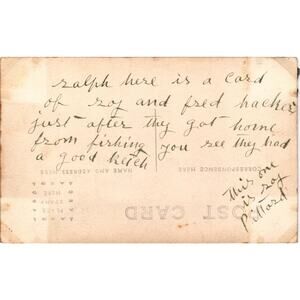 ralph here is a card
of roy and fred hacker
just after they got home
from fishing you see they had
a good ketch
This one
is roy
Pittard
CORRESPONDENCE HERE
NAME AND ADDRESS HERE
POST CARD
PLACE
STAMP
HERE